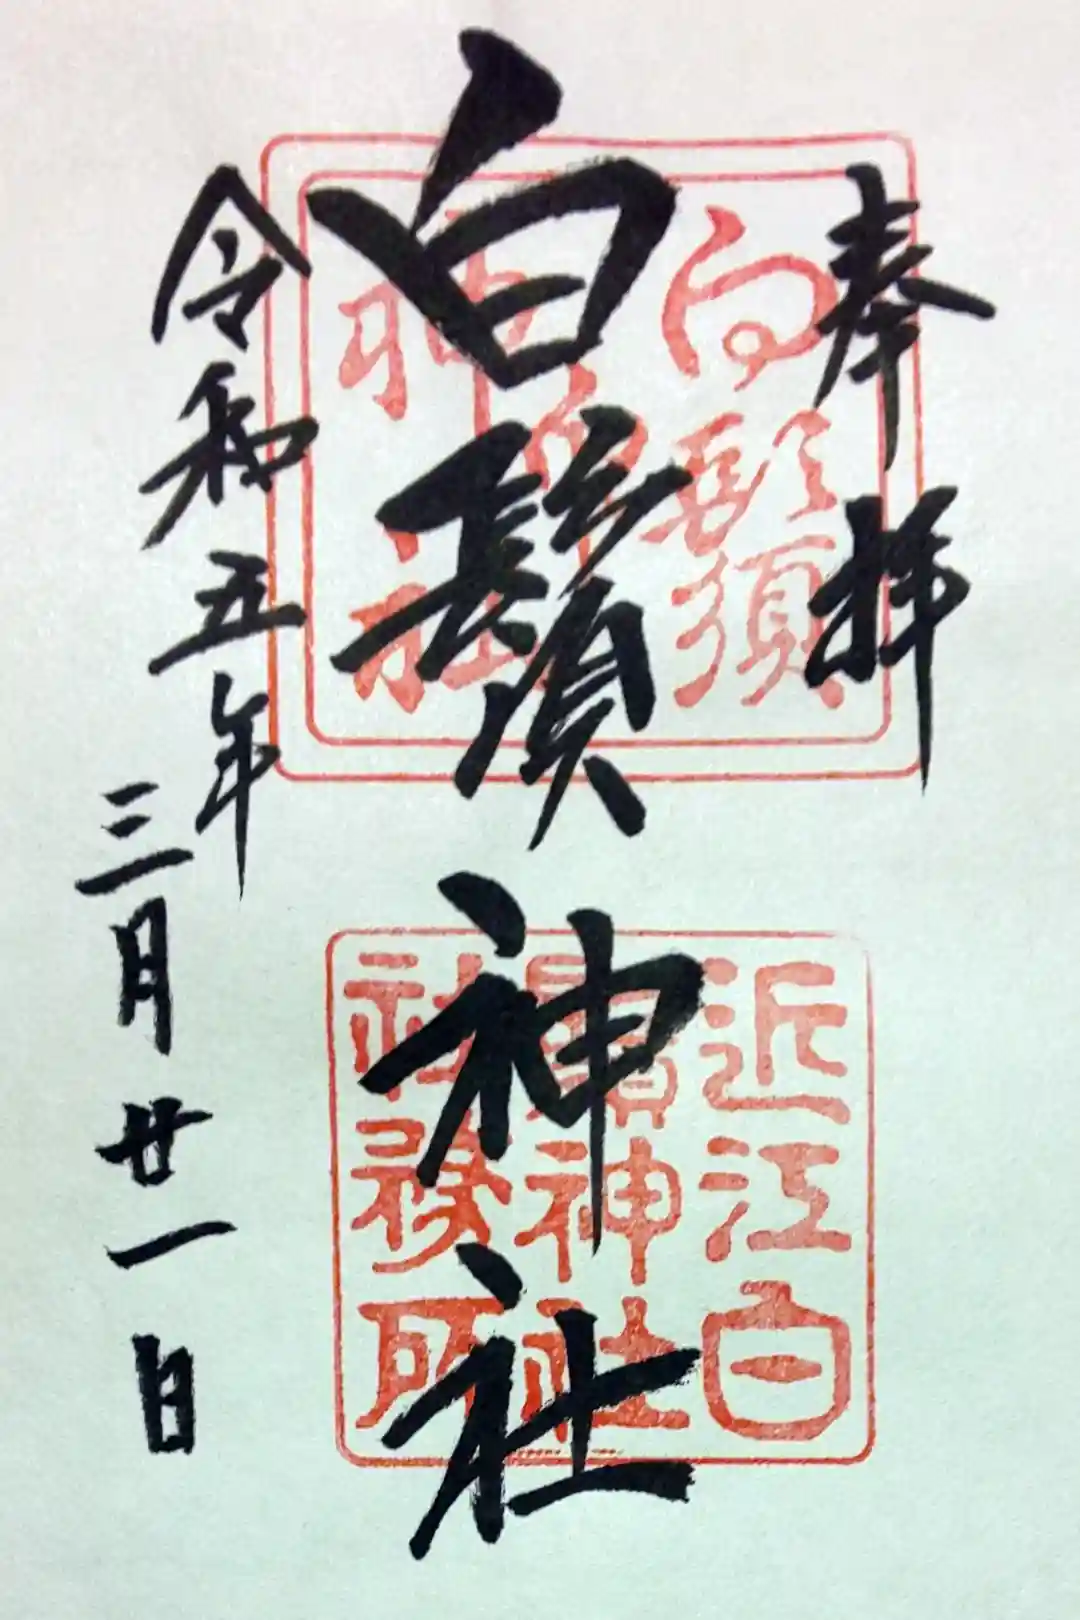 奉拝
白鬚神社
令和五年
三月廿一日
白鬚
神社
近江白
鬚神社
社務所